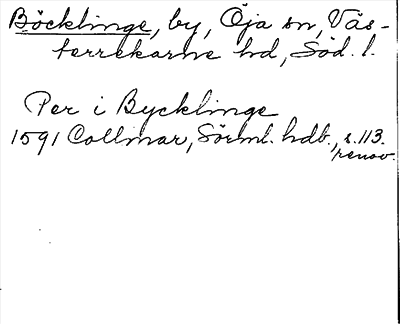 Böcklinge, by, Öja sn, Väs-
terrekarne hd, Söd. l.
Per i Bycklinge
1591 Collmar, Sörml. hdb., s. 113.
renov.